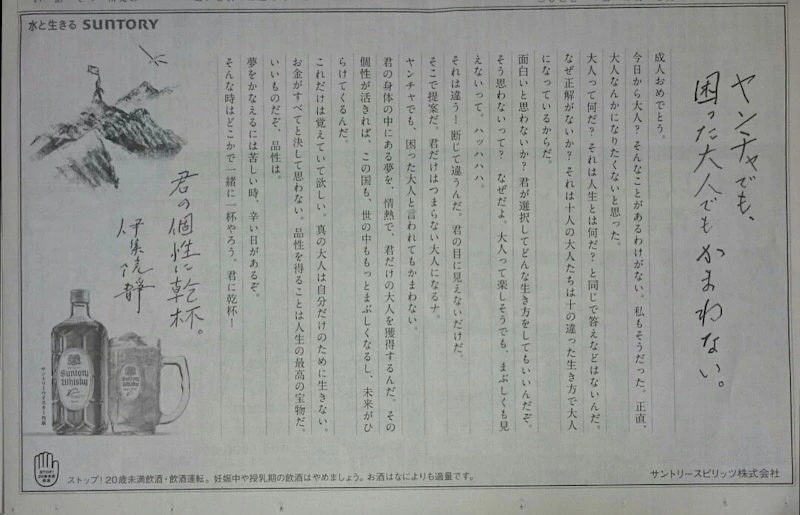 水と生きる SUNTORY
ヤンチャでも、
困った大人でもかまわない。
成人おめでとう。
今日から大人？そんなことがあるわけがない。私もそうだった。正直、
大人なんかになりたくないと思った。
大人って何だ？それは人生とは何だ？と同じで答えなどはないんだ。
なぜ正解がないか？それは十人の大人たちは十の違った生き方で大人
になっているからだ。
面白いと思わないか？君が選択してどんな生き方をしてもいいんだぞ。
そう思わないって？なぜだよ。大人って楽しそうでも、まぶしくも見
えないって。ハッハハハ。
それは違う！断じて違うんだ。君の目に見えないだけだ。
そこで提案だ。君だけはつまらない大人になるナ。
ヤンチャでも、困った大人と言われてもかまわない。
君の身体の中にある夢を、情熱で、君だけの大人を獲得するんだ。その
個性が活きれば、この国も、世の中ももっとまぶしくなるし、未来がひ
らけてくるんだ。
これだけは覚えていて欲しい。真の大人は自分だけのために生きない。
お金がすべてと決して思わない。品性を得ることは人生の最高の宝物だ。
いいものだぞ、品性は。
夢をかなえるには苦しい時、辛い日があるぞ。
そんな時はどこかで一緒に一杯やろう。君に乾杯！
君の個性に乾杯。
伊集院静
Suntory
Whisky
STOP!
ストップ！20歳未満飲酒・飲酒運転。妊娠中や授乳期の飲酒はやめましょう。お酒はなによりも適量です。
サントリースピリッツ株式会社